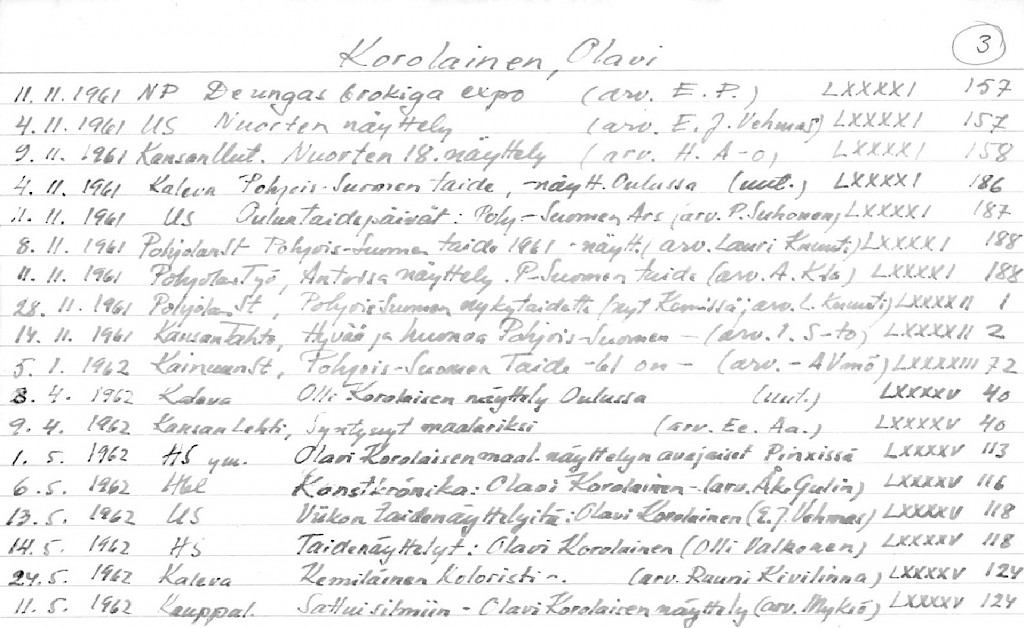 3
Korolainen, Olavi
11. 11. 1961 NP De ungas brokiga expo (arv. E. P.) LXXXXI 157
4. 11. 1961 US Nuorten näyttely (arv. E. J. Vehmas) LXXXXI 157
9. 11. 1961 Kansan Uut. Nuorten 18. näyttely (arv. H. A-o) LXXXXI 158
4. 11. 1961 Kaleva Pohjois-Suomen taide, -näytt. Oulussa (uut.) LXXXXI 186
11. 11. 1961 US Oulun taidepäivät: Pohj-Suomen Ars (arv. P. Suhonen) LXXXXI 187
8. 11. 1961 Pohjolan St Pohjois-Suomen taide 1961 -näytt. (arv. Lauri Knuuti) LXXXXI 188
11. 11. 1961 Pohjolan Työ, Antoisa näyttely. P-Suomen taide (arv. A. K-la) LXXXXI 188
28. 11. 1961 Pohjolan St, Pohjois-Suomen nykytaidetta (nyt Kemissä; arv. L. Knuuti) LXXXXII 1
14. 11. 1961 Kansan Tahto, Hyvää ja huonoa Pohjois-Suomen - (arv. I. S-to) LXXXXII 2
5. 1. 1962 Kainuun St, Pohjois-Suomen Taide -61 on - (arv. - AVmö) LXXXXIII 72
8. 4. 1962 Kaleva Olli Korolaisen näyttely Oulussa (uut.) LXXXXV 40
9. 4. 1962 Kansan Lehti, Syntynyt maalariksi (arv. Ee. Aa.) LXXXXV 40
1. 5. 1962 HS ym. Olavi Korolaisen maal. näyttelyn avajaiset Pinxissä LXXXXV 113
6. 5. 1962 Hbl Konstkrönika: Olavi Korolainen - (arv. Åke Gulin) LXXXXV 116
13. 5. 1962 US Viikon taidenäyttelyitä: Olavi Korolainen (E. J. Vehmas) LXXXXV 118
14. 5. 1962 HS Taidenäyttelyt: Olavi Korolainen (Olli Valkonen) LXXXXV 118
24. 5. 1962 Kaleva Kemiläinen koloristi -. (arv. Rauni Kivilinna) LXXXXV 124
11. 5. 1962 Kauppal. Sattui silmiin - Olavi Korolaisen näyttely (arv. Mykiö) LXXXXV 124